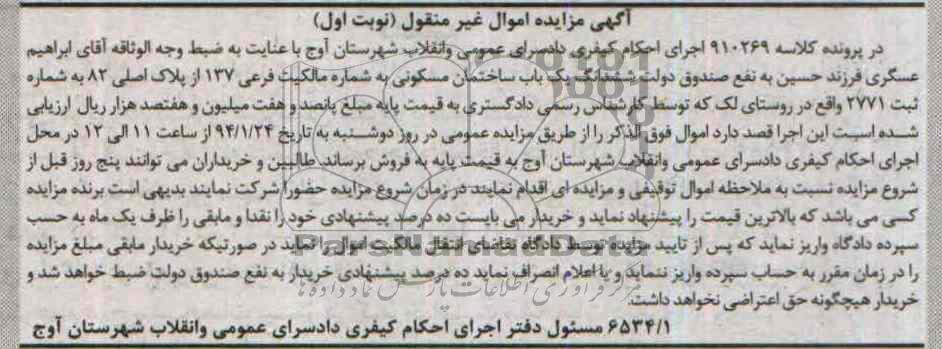 آگهی مزایده اموال غیر منقول (نوبت اول)
در پرونده کلاسه ۹۱۰۲۶۹ اجرای احکام کیفری دادسرای عمومی وانقلاب شهرستان آوج با عنایت به ضبط وجه الوثاقه آقای ابراهیم
عسگری فرزند حسین به نفع صندوق دولت ششدانگ یک باب ساختمان مسکونی به شماره مالکیت فرعی ۱۳۷ از پلاک اصلی ۸۲ به شماره
ثبت ۲۷۷۱ واقع در روستای لک که توسط کارشناس رسمی دادگستری به قیمت پایه مبلغ پانصد و هفت میلیون و هفتصد هزار ریال ارزیابی
شده است این اجرا قصد دارد اموال فوق الذکر را از طریق مزایده عمومی در روز دوشنبه به تاریخ ۹۴/۱/۲۴ از ساعت ۱۱ الی ۱۲ در محل
اجرای احکام کیفری دادسرای عمومی وانقلاب شهرستان آوج به قیمت پایه به فروش برساند. طالبین و خریداران می توانند پنج روز قبل از
شروع مزایده نسبت به ملاحظه اموال توقیفی و مزایده ای اقدام نمایند در زمان شروع مزایده حضوراً شرکت نمایند بدیهی است برنده مزایده
کسی می باشد که بالاترین قیمت را پیشنهاد نماید و خریدار می بایست ده درصد پیشنهادی خود را نقدا و مابقی را ظرف یک ماه به حسب
سپرده دادگاه واریز نماید که پس از تایید مزایده توسط دادگاه تقاضای انتقال مالکیت اموال را نماید در صورتیکه خریدار مابقی مبلغ مزایده
را در زمان مقرر به حساب سپرده واریز ننماید و یا اعلام انصراف نماید ده درصد پیشنهادی خریدار به نفع صندوق دولت ضبط خواهد شد و
خریدار هیچگونه حق اعتراضی نخواهد داشت.
۶۵۳۴/۱ مسئول دفتر اجرای احکام کیفری دادسرای عمومی وانقلاب شهرستان آوج
ParsNamadData